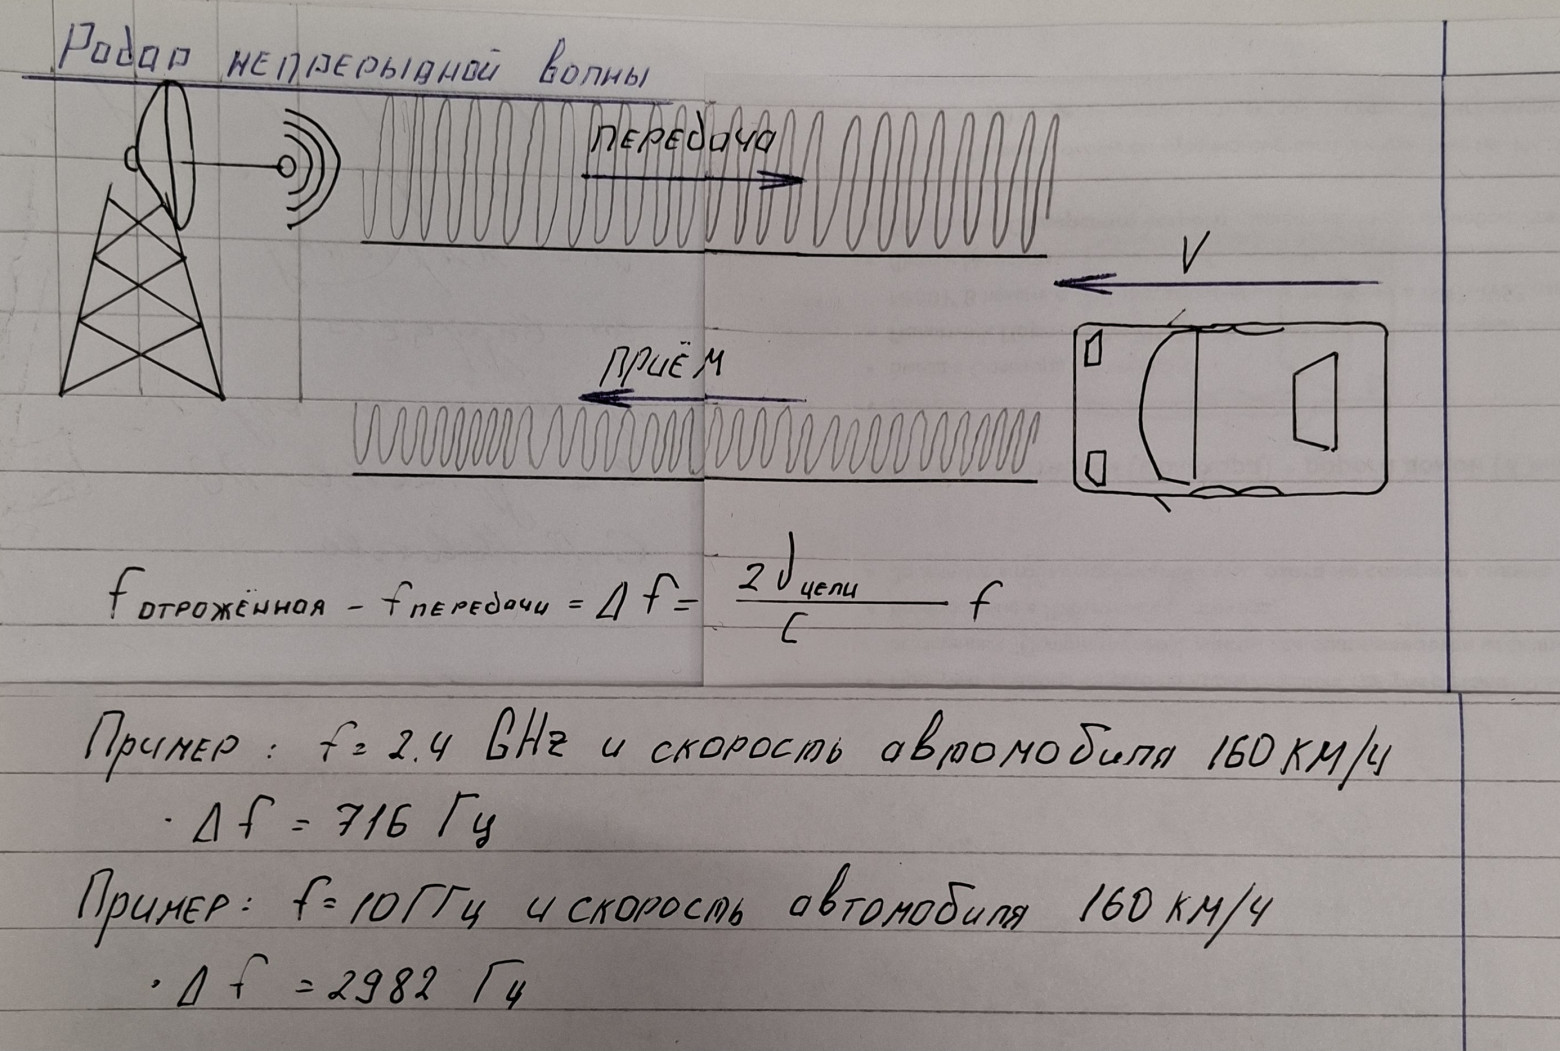 Радар непрерывной волны
ПЕРЕДАЧА
V
ПРИЁМ
f отрожённая - f передачи = Δf = 2V цели / C f
Пример: f = 2.4 GHz и скорость автомобиля 160 км/ч
· Δf = 716 Гц
Пример: f = 10 ГГц и скорость автомобиля 160 км/ч
· Δf = 2982 Гц